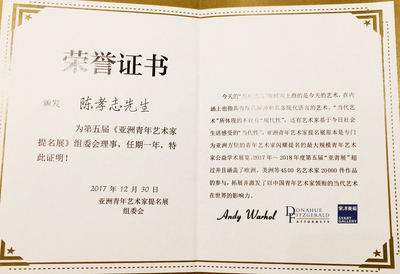 荣誉证书
颁发 陈孝志先生
为第五届《亚洲青年艺术家
提名展》组委会理事，任期一年，特
此证明！
2017 年 12 月 30 日
亚洲青年艺术家提名展
组委会
今天的艺术
的是今天的艺术，在内
涵上也指具有
具备现代语言的艺术。"当代艺
术"所体现的不仅有"现代性"，还有艺术家基于今日社
会生活感受的"当代性"。亚洲青年艺术家提名展原本是专门
为亚洲方位的青年艺术家闪耀提名的最大规模青年艺术
家公益学术展览。2017 年～2018 年度第五届"亚青展"超
过并且涵盖了欧洲、美洲等4500 名艺术家 20000 件作品
的参与，拓展并激发了以中国青年艺术家领衔的当代艺术
在世界的影响力。
Andy Warhol
DONAHUE
FITZGERALD
ATTORNEYS
START
GALLERY